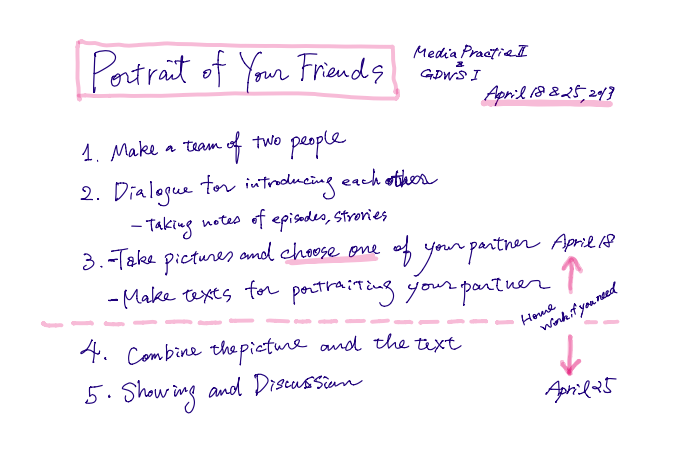 Portrait of Your Friends
Media Practice II
&
GDWS I
April 18 & 25, 2019
1. Make a team of two people
2. Dialogue for introducing each other
- Taking notes of episodes, strories
3. - Take pictures and choose one of your partner April 18
- Make texts for portraiting your partner
Home
Work if you need
4. Combine the picture and the text
5. Showing and Discussion
April 25